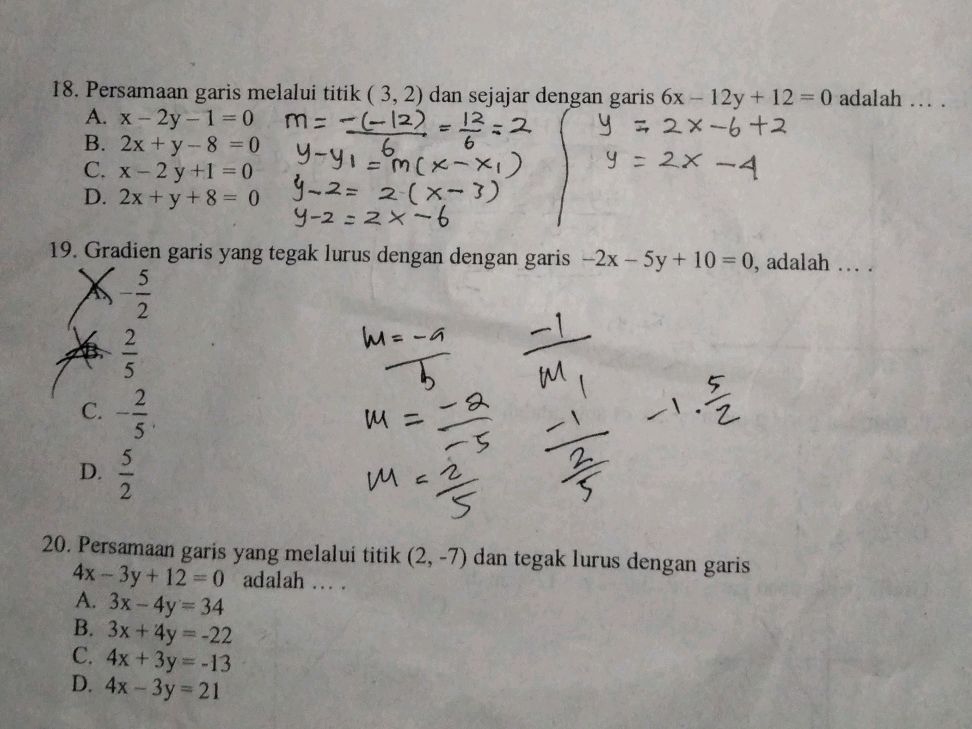 18. Persamaan garis melalui titik ( 3, 2) dan sejajar dengan garis 6x – 12y + 12 = 0 adalah … .
A. x – 2y – 1 = 0
B. 2x + y – 8 = 0
C. x – 2 y +1 = 0
D. 2x + y + 8 = 0
m = -(-12)/6 = 12/6 = 2
y-y₁ = m(x-x₁)
y-2 = 2·(x-3)
y-2 = 2x-6
y = 2x-6+2
y = 2x-4
19. Gradien garis yang tegak lurus dengan dengan garis –2x – 5y + 10 = 0, adalah … .
A. -5/2
B. 2/5
C. -2/5
D. 5/2
m = -a/b
m = -2/-5
m = 2/5
-1/m₁
-1/(2/5)
-1 · 5/2
20. Persamaan garis yang melalui titik (2, -7) dan tegak lurus dengan garis
4x – 3y + 12 = 0 adalah … .
A. 3x – 4y = 34
B. 3x + 4y = -22
C. 4x + 3y = -13
D. 4x – 3y = 21